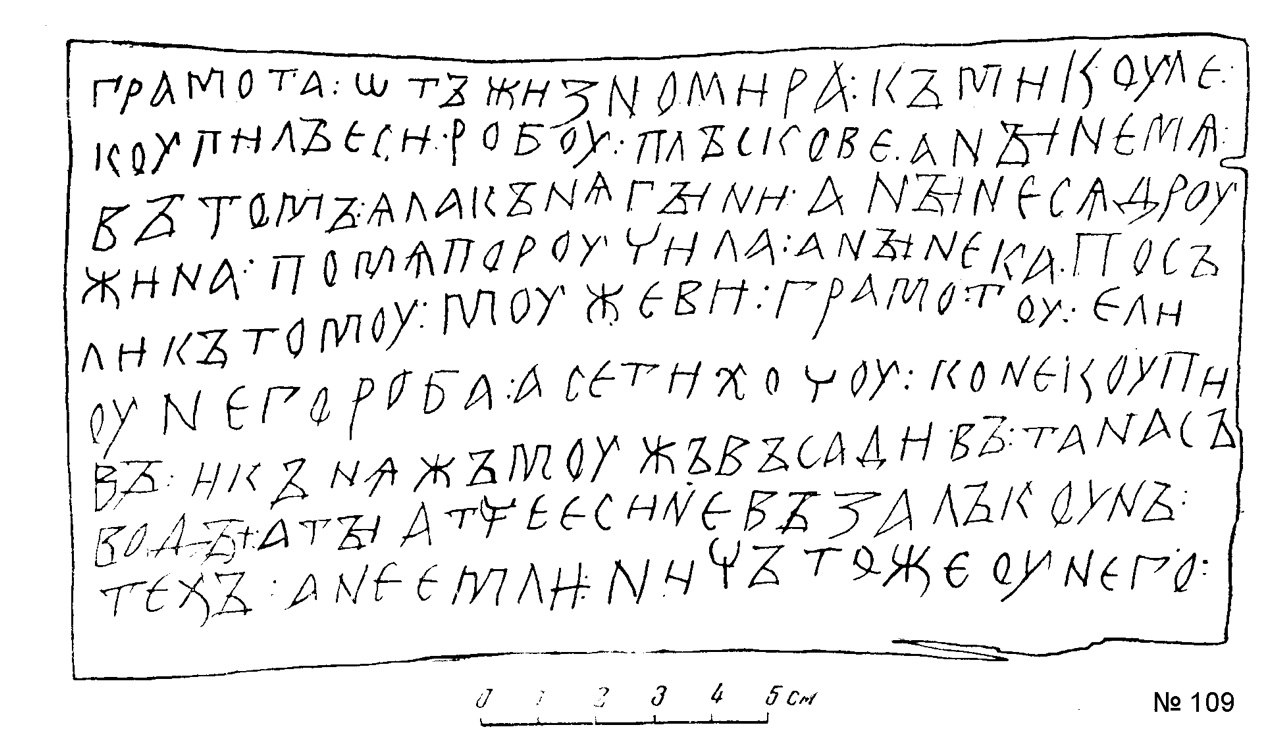 ГРАМОТА:ѠТЪЖИЗНОМИРА:КЪМИКОУЛЕ:
КОУПИЛЪЕСИ:РОБОУ:ПЛЪСКОВЕ.АНЪІНЕМѦ:
ВЪТОМЪ:ѦЛАКЪНѦГЪІНИ:АНЪІНЕСѦДРОУ
ЖИНА:ПОМѦПОРОУЧИЛА:АНЪІНЕКА.ПОСЪ
ЛИКЪТОМОУ:МОУЖЕВИ:ГРАМО:ТОУ:ЕЛИ
ОУНЕГОРОБА:АСЕТИХОЧОУ:КОНЕКОУПИ
ВЪ:ИКЪНѦЖЪМОУЖЪВЪСАДИВЪ:ТАНАСЪ
ВОДЪІ:АТЪІАТЧЕЕСИНЕВЪЗАЛЪКОУНЪ:
ТЕХЪ:АНЕЕМЛИ:НИЧЪТОЖЕОУНЕГО:
0 1 2 3 4 5 см
№ 109